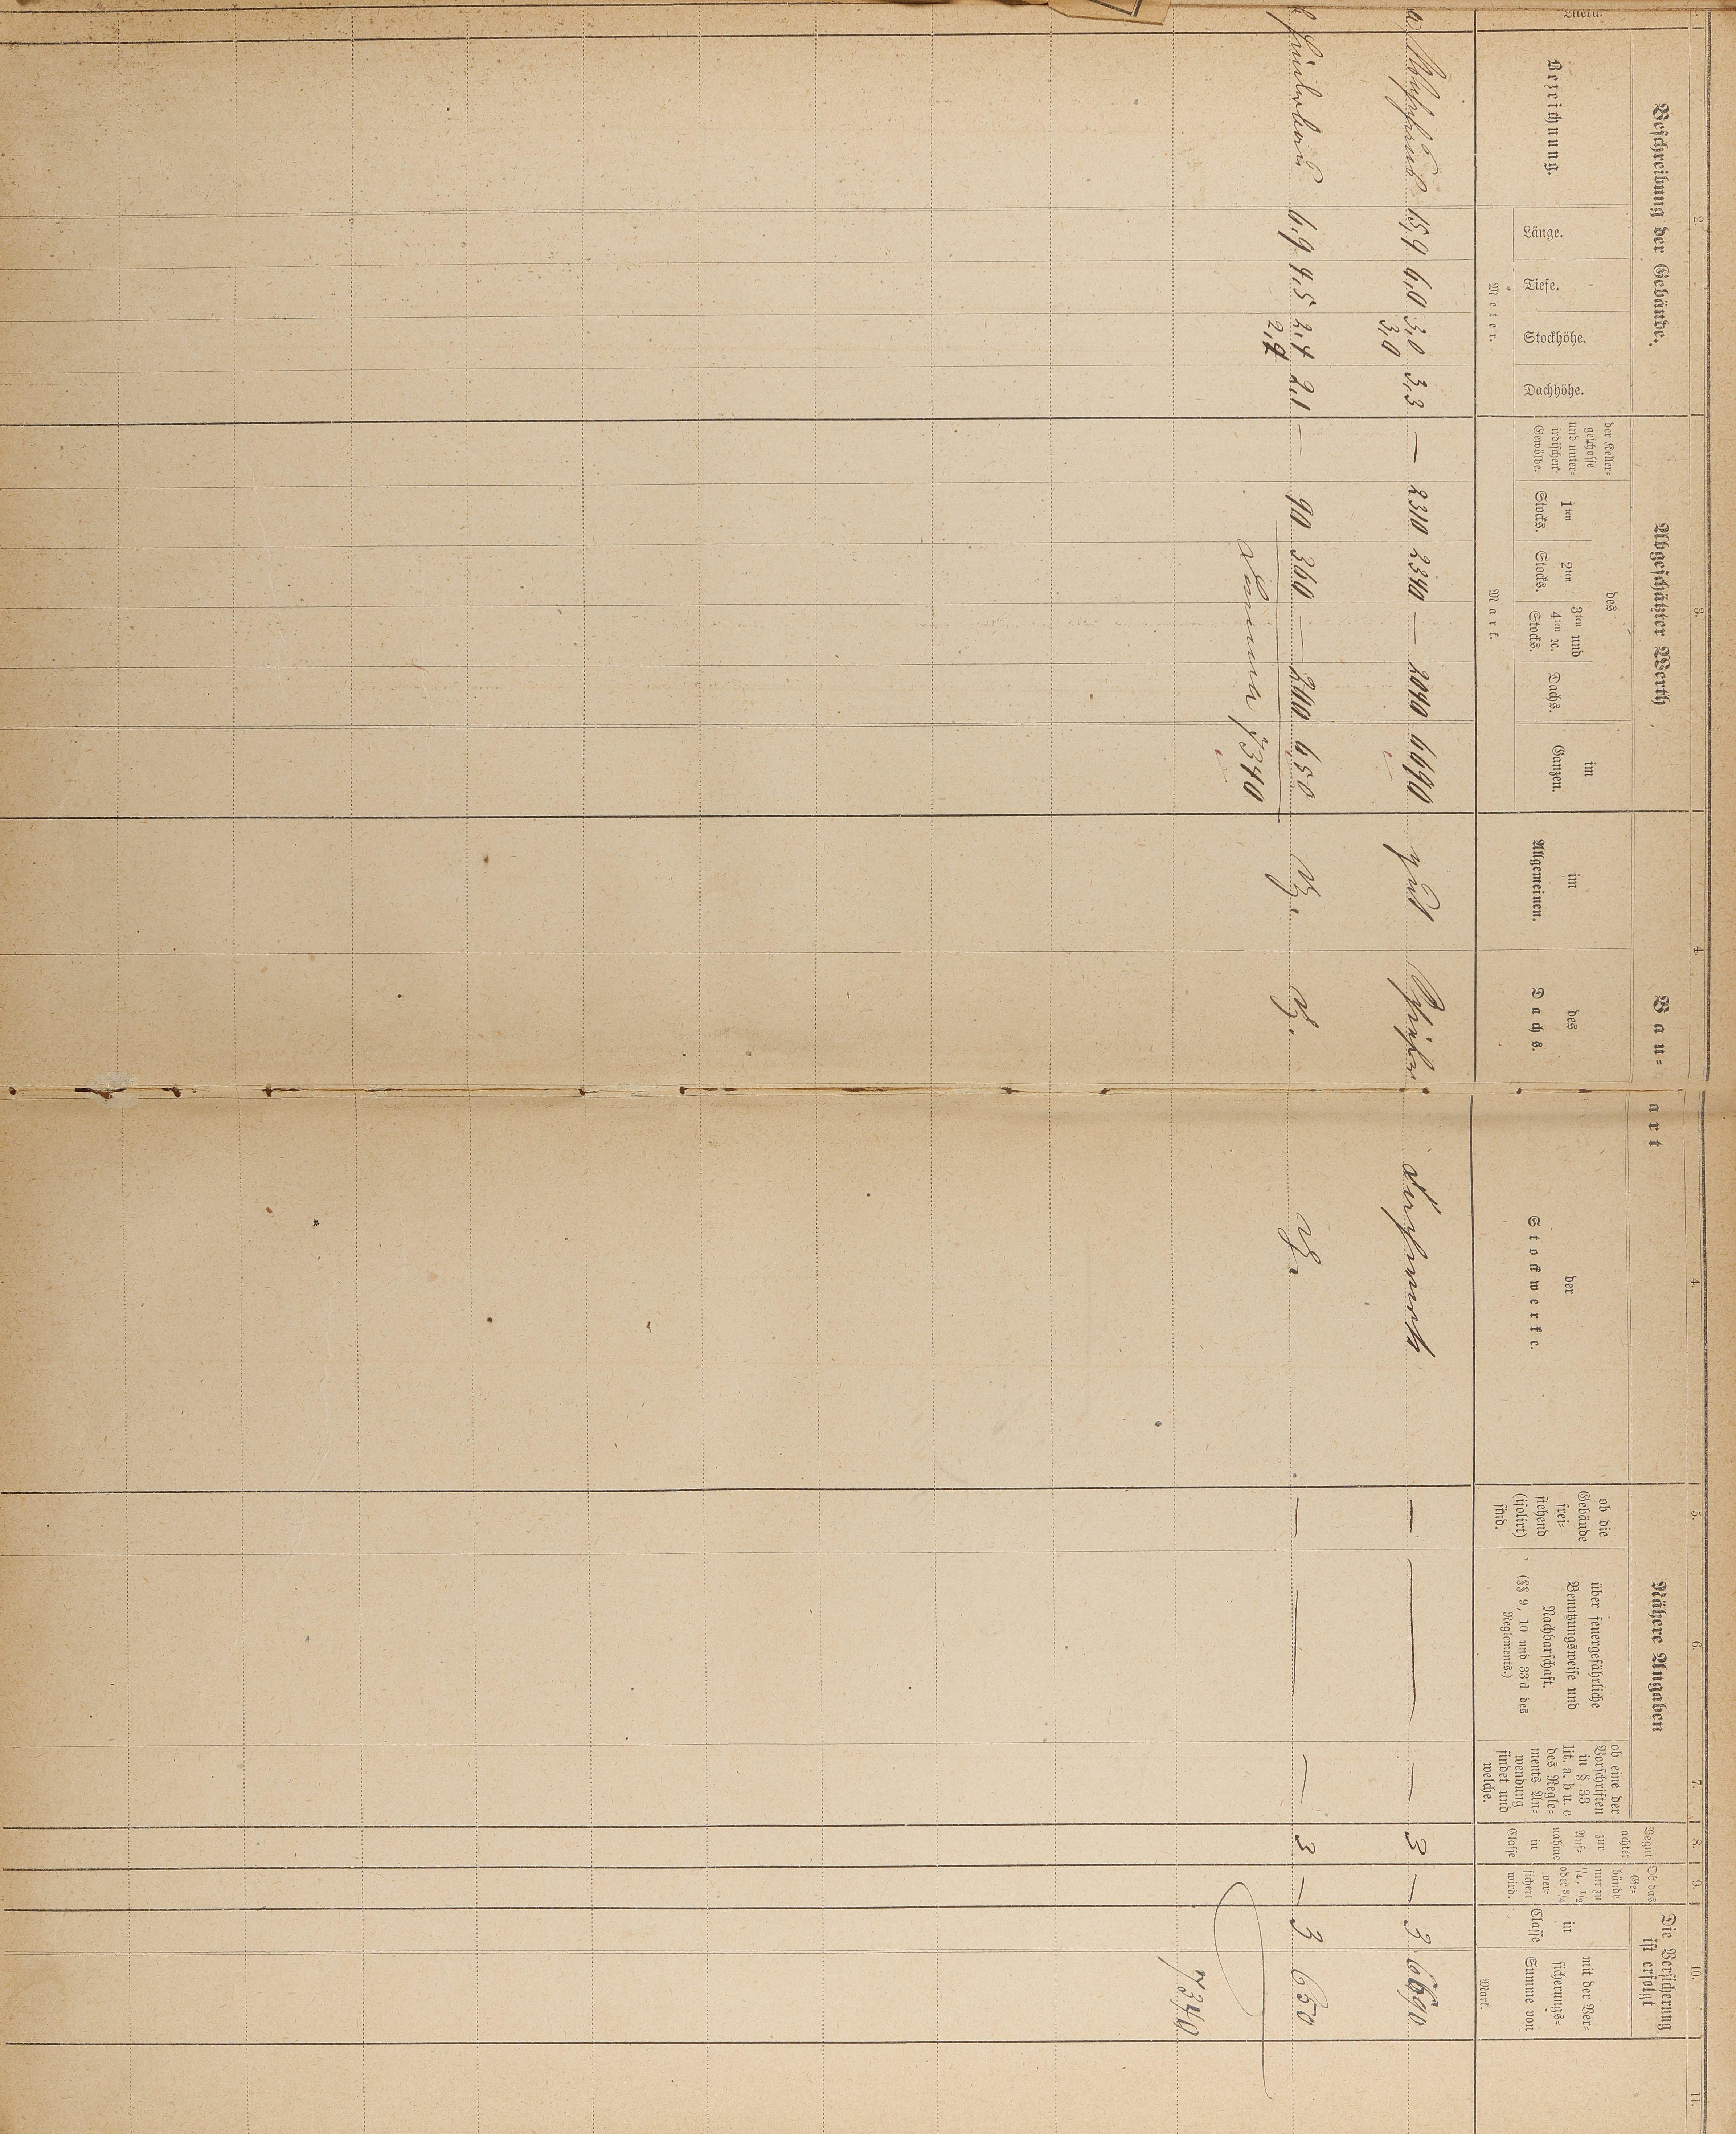 2. 3. 4. 4. 5. 6. 7. 8. 9. 10. 11.
Beschreibung der Gebäude. Abgeschätzter Werth Bau- art Nähere Angaben
Begut- achtet zur Auf- nahme in Classe
Ob das Ge- bäude nur zu 1/4, 1/2 oder 3/4 ver- sichert wird.
Die Versicherung ist erfolgt
Bezeichnung.
Länge. Tiefe. Stockhöhe. Dachhöhe.
Meter.
der Keller- geschosse und unter- irdischen Gewölbe.
des
1ten Stocks.
2ten Stocks.
3ten und 4ten ꝛc. Stocks.
Dachs.
im Ganzen.
Mark.
im Allgemeinen.
des Dachs.
der Stockwerke.
ob die Gebäude frei- stehend (isolirt) sind.
über feuergefährliche Benutzungsweise und Nachbarschaft.
(§§ 9, 10 und 33 d des Reglements.)
ob eine der Vorschriften in § 33 lit. a, b u. c des Regle- ments An- wendung findet und welche.
in Classe
mit der Ver- sicherungs- Summe von
Mark.
a Wohnhaus 15,4 6,0 3,0 3,3 — 2310 2340 — 2040 6690 gut Schiefer Fachwerk — — — 3 — 3 6690
3,0
b 6,9 4,5 2,4 2,1 — 90 360 — 200 650 — — — 3 — 3 650
2,4
Summa 7340
7340